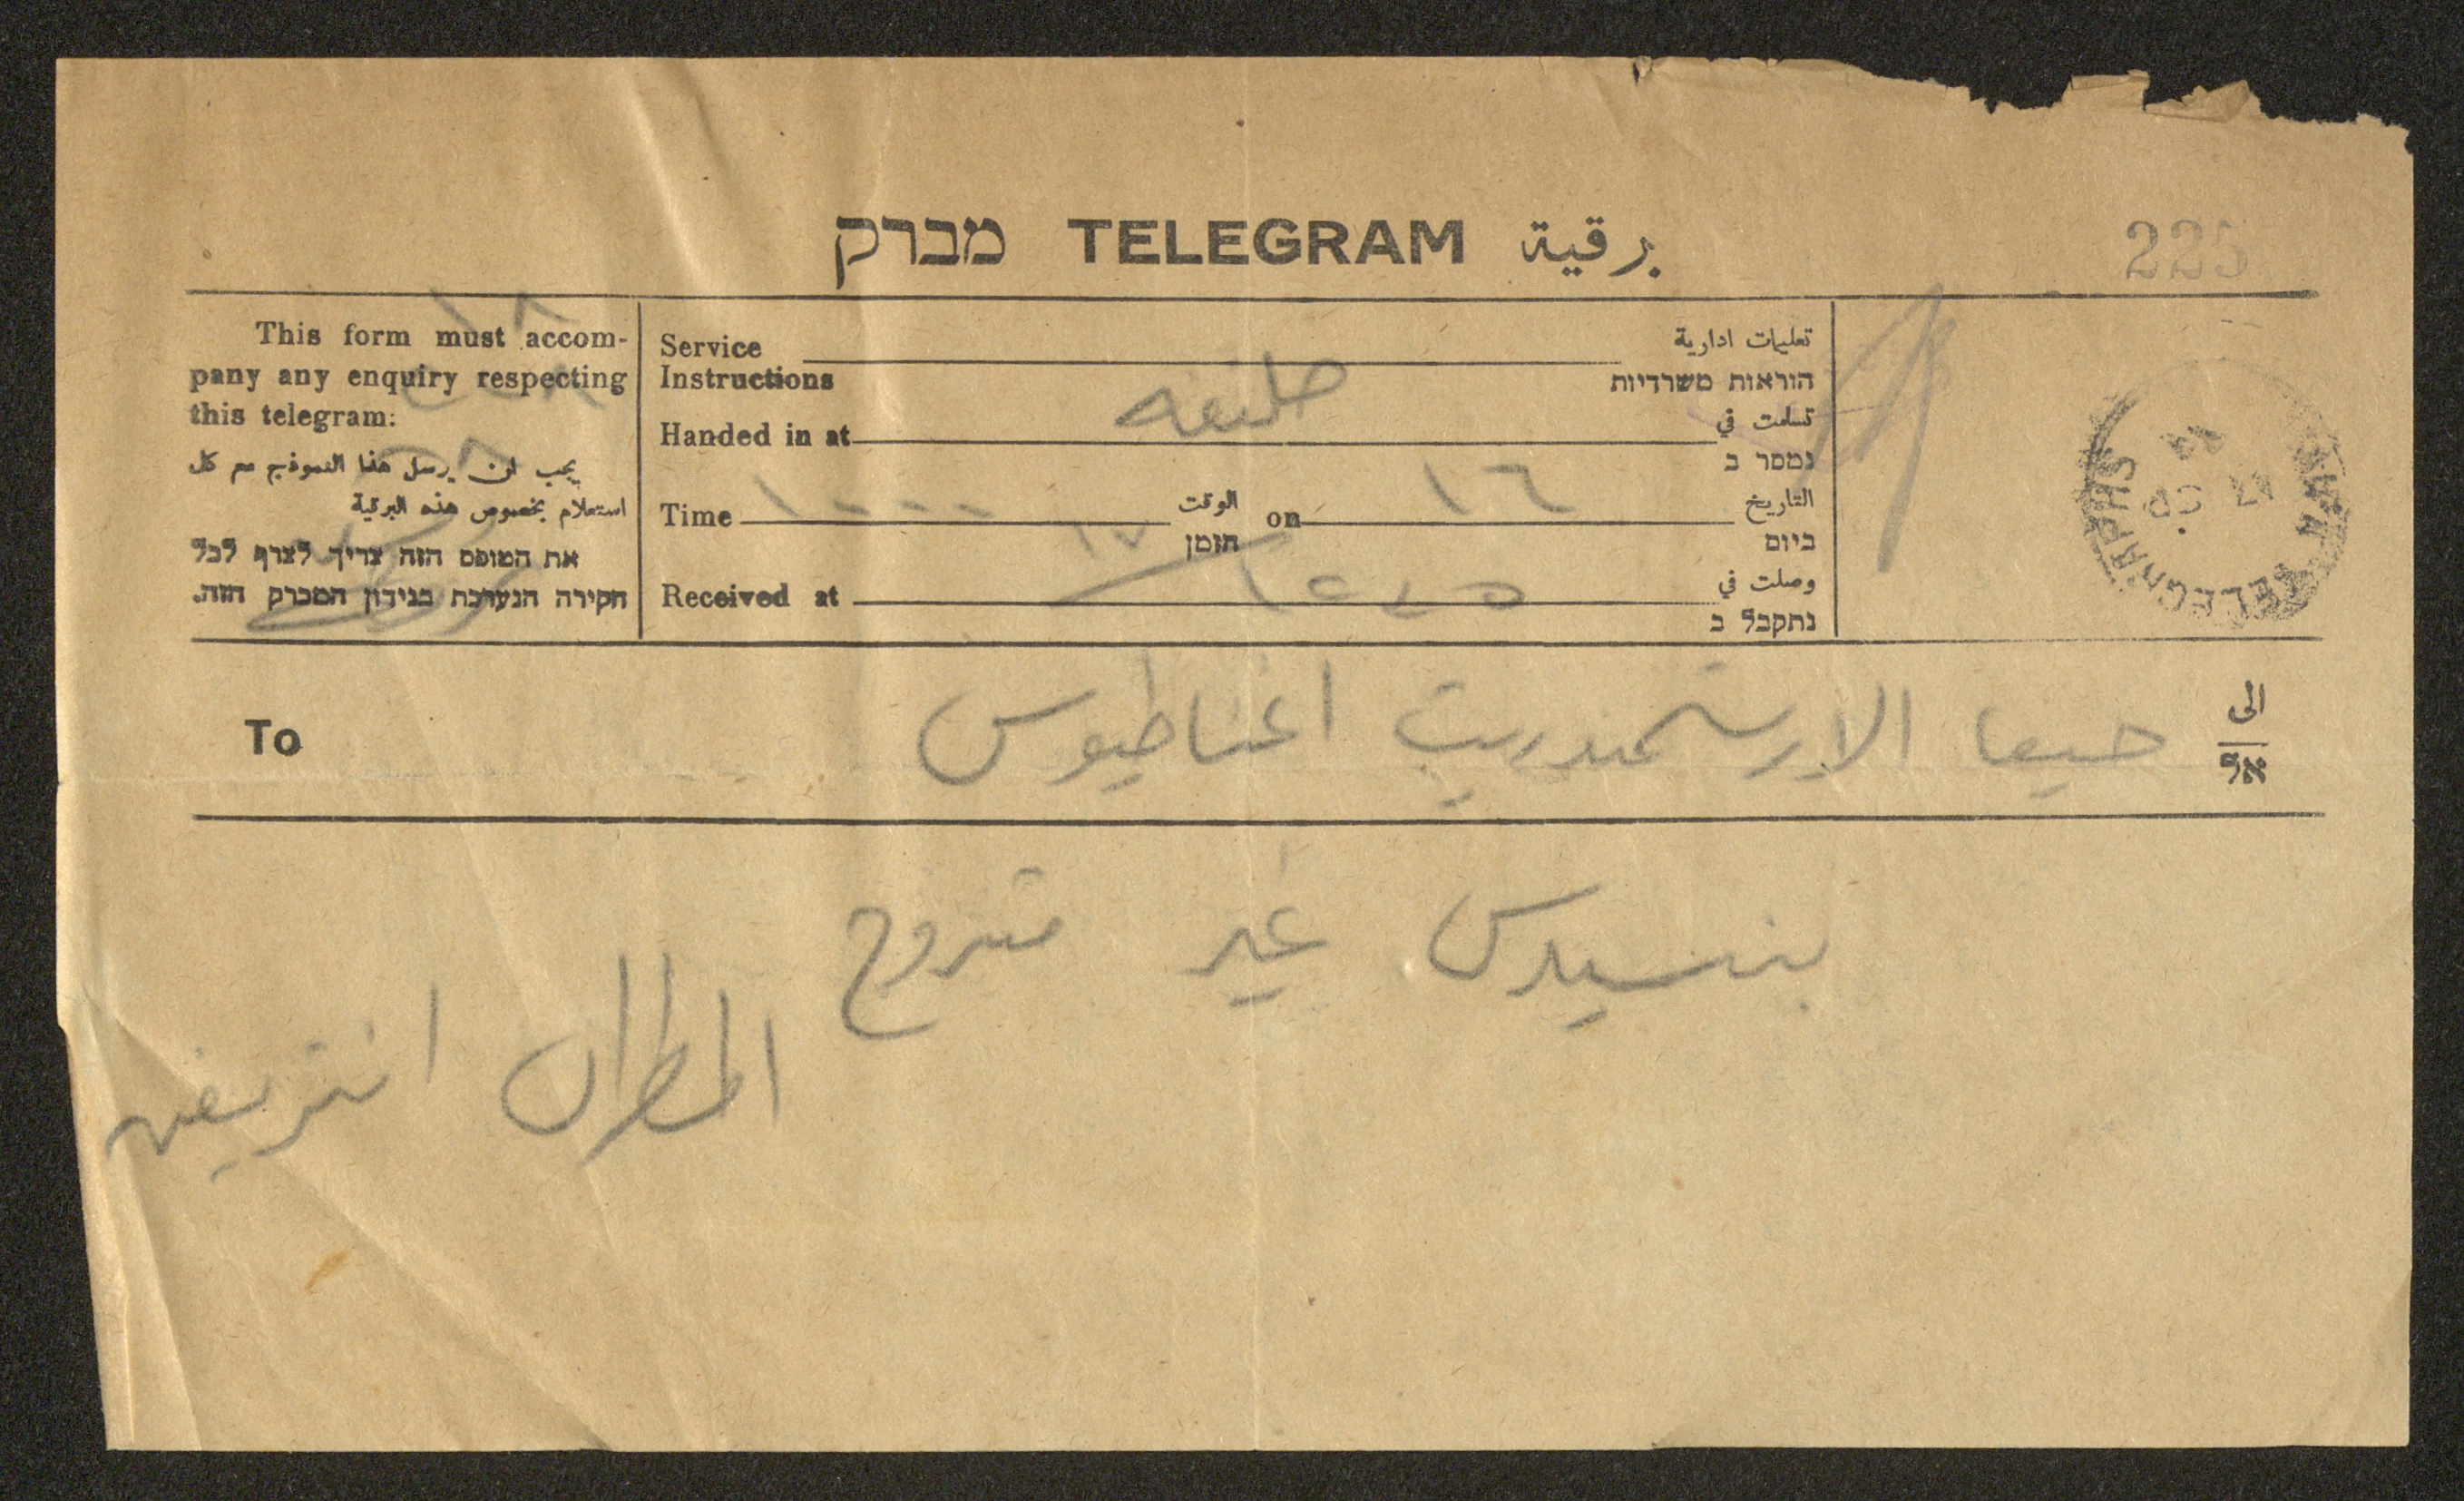 מברק TELEGRAM برقية
225
This form must accom-
pany any enquiry respecting
this telegram:
يجب ان يرسل هذا النموذج مع كل
استعلام بخصوص هذه البرقية
את הטופס הזה צריך לצרף לכל
חקירה הנערכת בנידון המברק הזה.
Service
Instructions
تعليمات ادارية
הוראות משרדיות
Handed in at
تسلمت في
נמסר ב
Time ١٠٠٠ الوقت
הזמן
on ١٦ التاريخ
ביום
١٧
Received at
وصلت في
נתקבל ב
TELEGRAPHS
To
حيفا الارشمندريت اغناطيوس
الى
אל
غير متزوج
المطران